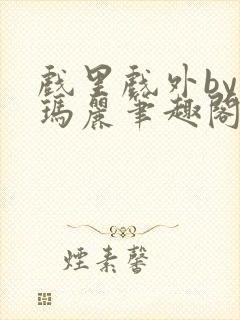 戲里戲外by
瑪麗筆趣閣
煙素馨